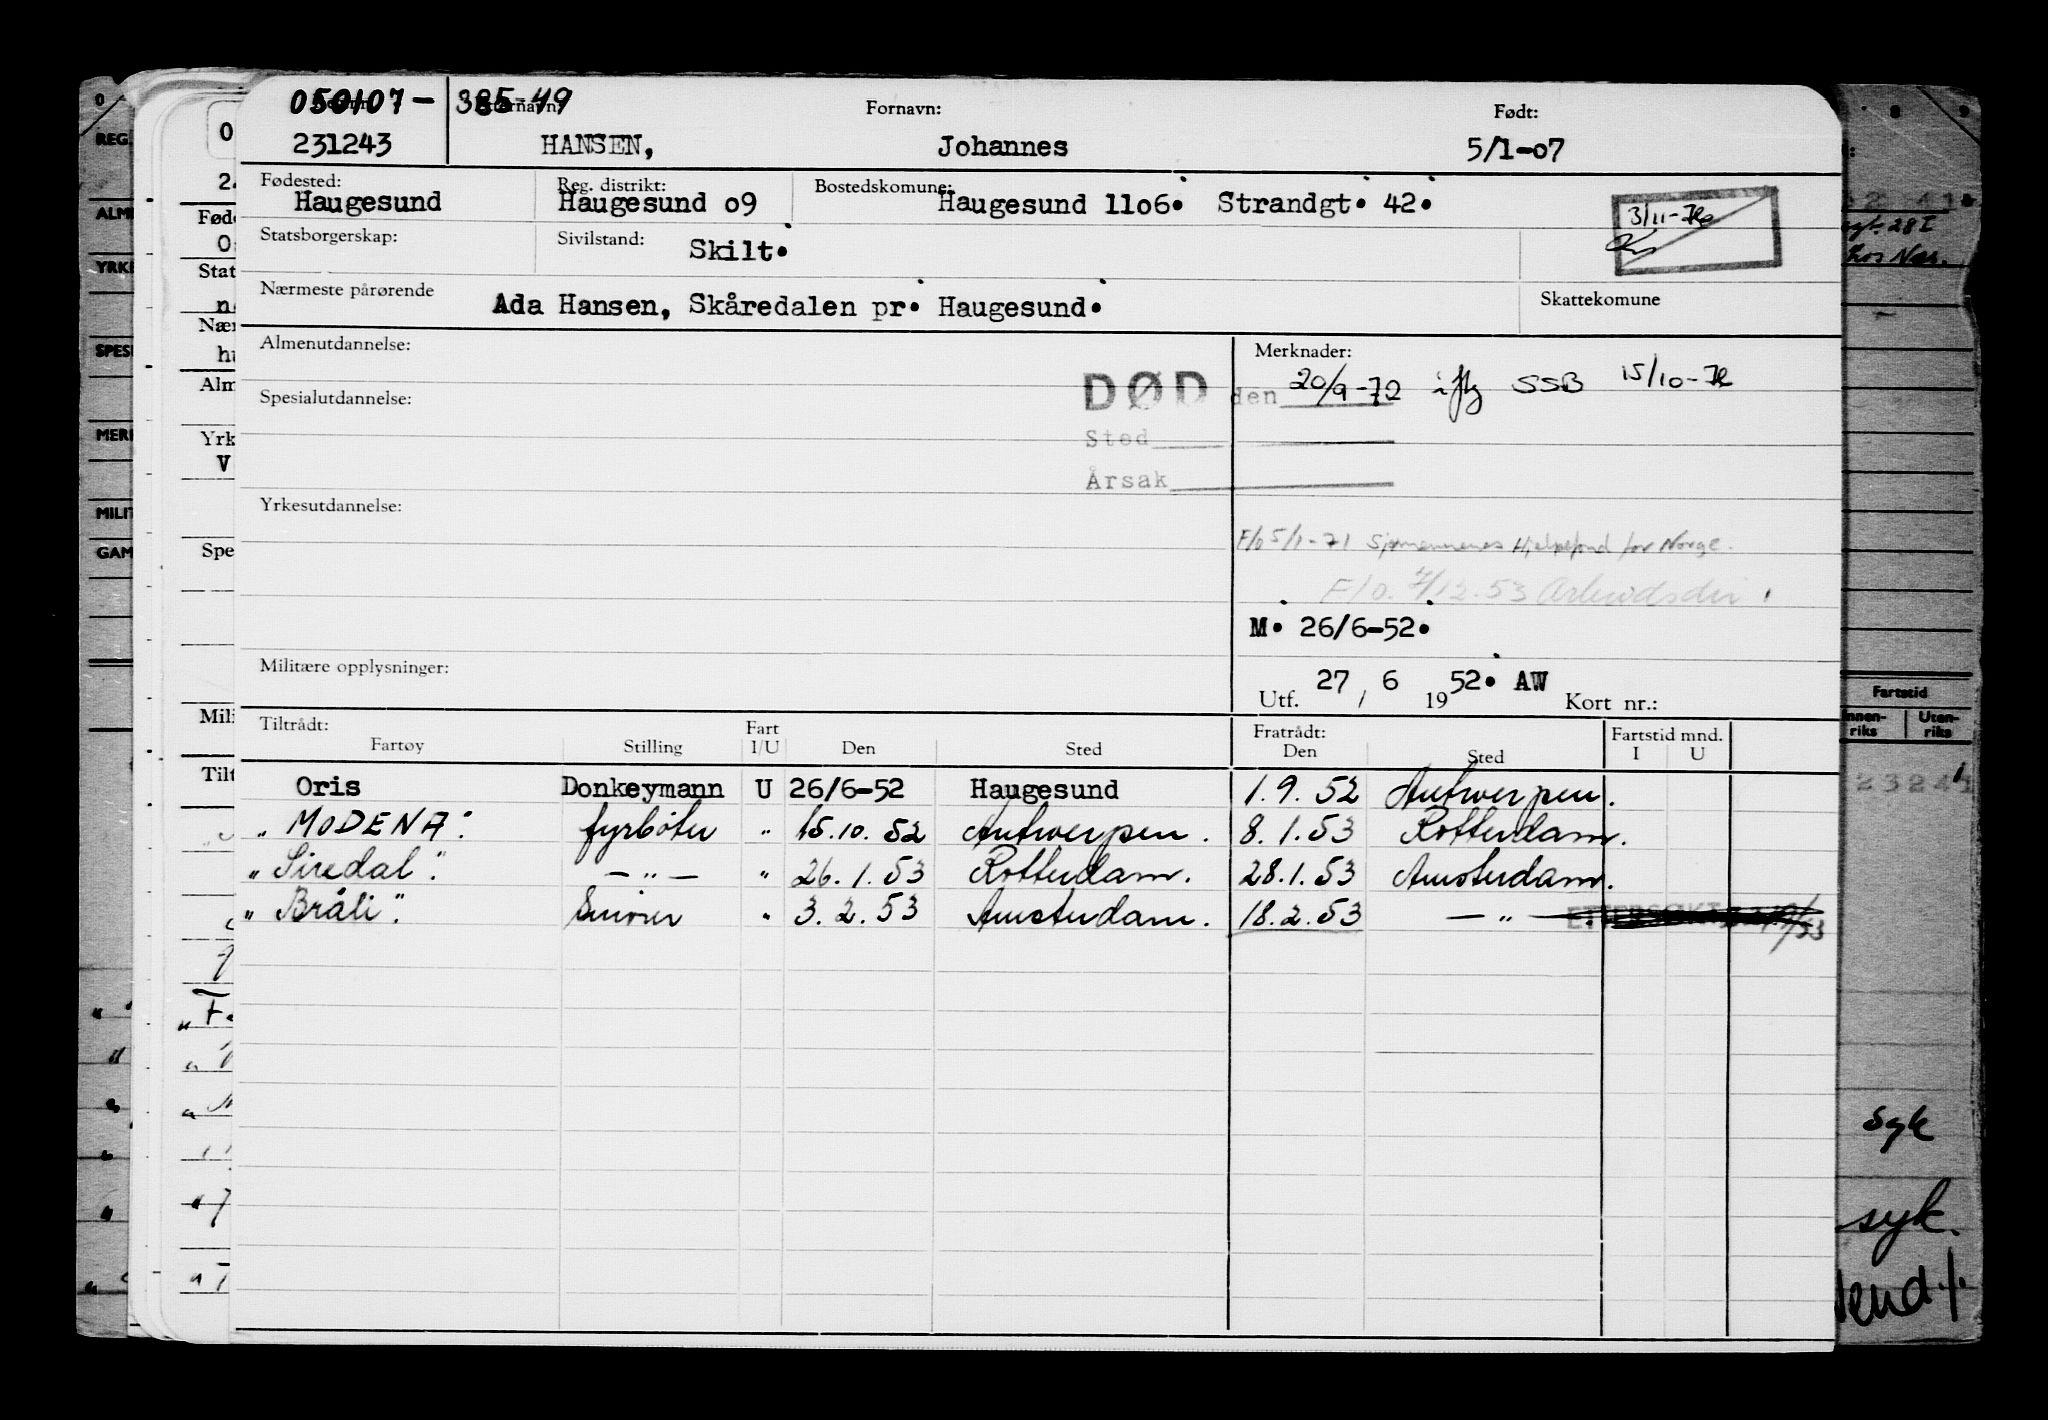 050107- 385-49
Fornavn: Født:
231243 HANSEN, Johannes 5/1-07
Fødested: Reg. distrikt: Bostedskomune:
Haugesund Haugesund o9 Haugesund 11o6. Strandgt. 42.
3/11-72
Statsborgerskap: Sivilstand: Skilt.
Nærmeste pårørende Ada Hansen, Skåredalen pr. Haugesund. Skattekomune
Almenutdannelse: Merknader:
DØD den 20/9-72 iflg SSB 15/10-72
Spesialutdannelse:
Sted
Årsak
Yrkesutdannelse:
F/o 5/1-71 Sjømennenes Hjelpefond for Norge.
F/o. 7/12.53 Arbeidsdir.
M. 26/6-52.
Militære opplysninger:
Utf. 27 / 6 1952. AW Kort nr.:
Tiltrådt: Fart Fratrådt: Fartstid mnd.
Fartøy Stilling I/U Den Sted Den Sted I U
Oris Donkeymann U 26/6-52 Haugesund 1.9.52 Antwerpen.
„MODENA" fyrbøter " 15.10.52 Antwerpen. 8.1.53 Rotterdam.
„Siredal" — " — " 26.1.53 Rotterdam. 28.1.53 Amsterdam.
„Bråli" Smører " 3.2.53 Amsterdam. 18.2.53 — " —
REG.
ALM
YRKE
SPES
MERK
MILIT
GAM
Fartstid
Innen-riks Uten-riks
23241
syk
syk.
Vend!